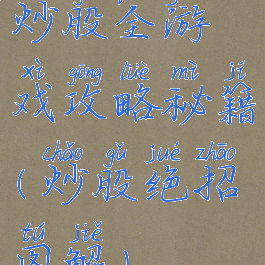 炒股全游
xì gōng lüè mì jí
戏攻略秘籍
chǎo gǔ jué zhāo
(炒股绝招
tú jiě
图解)